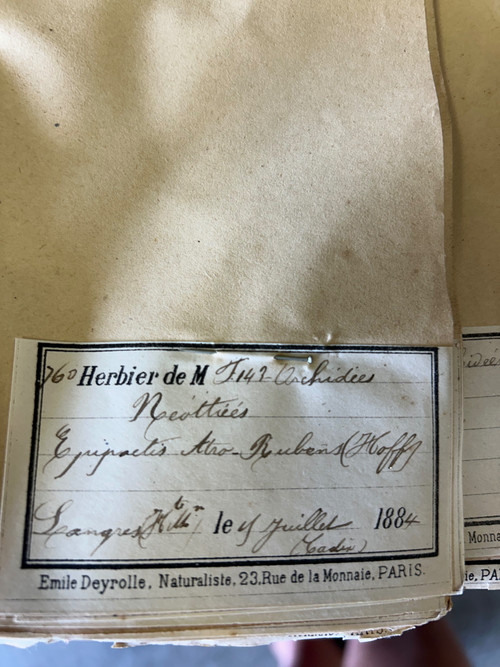 760 Herbier de M F.142 Orchidées
Néottiées
Epipactis Atro-Rubens (Hoff)
Langres (Hte Mne) le Juillet 1884
(Cadix)
Emile Deyrolle, Naturaliste, 23, Rue de la Monnaie, PARIS.
idées
Monna
ie, PA